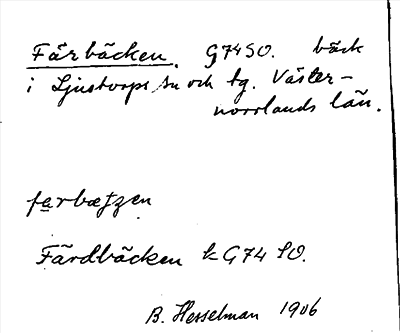 Färbäcken. G74SO. bäck
i Ljustorps sn och tg. Väster-
norrlands län.
farbæƭzen
Färdbäcken k G74 SO.
B. Hesselman 1906